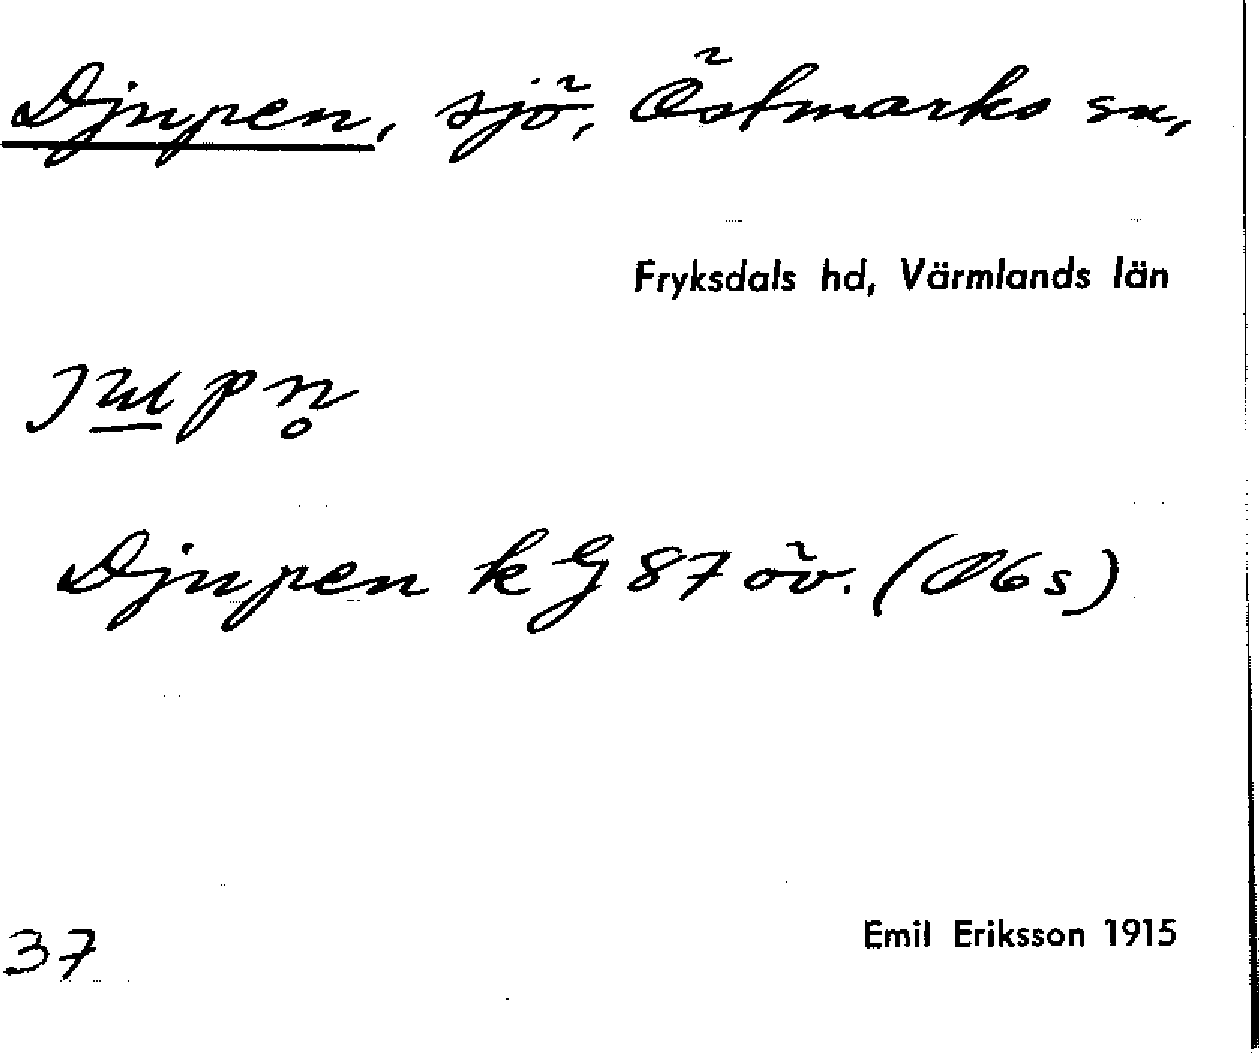 Djupen, sjö, Östmarks sn,
Fryksdals hd, Värmlands län
Djupen kG 87 öv. (O6s)
37
Emil Eriksson 1915